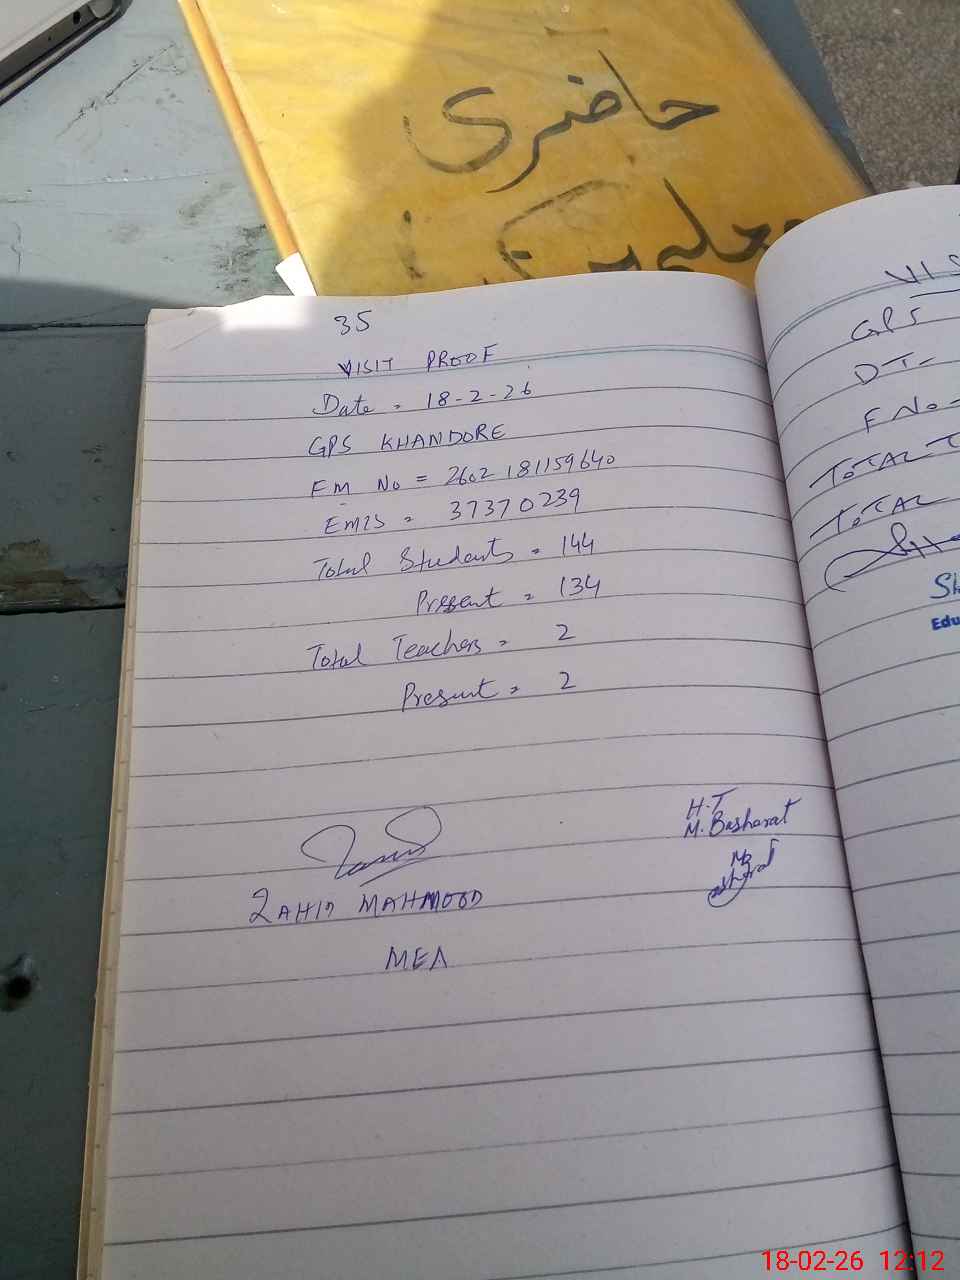 حاضری
معلمین
35
VISIT PROOF
Date = 18-2-26
GPS KHANDORE
FM No = 2602181159640
EMIS = 37370239
Total Students = 144
Present = 134
Total Teachers = 2
Present = 2
H.T
M. Basharat
ZAHID MAHMOOD
MEA
GPS
DT-
F No-
TOTAL
TOTAL
Edu
18-02-26 12:12